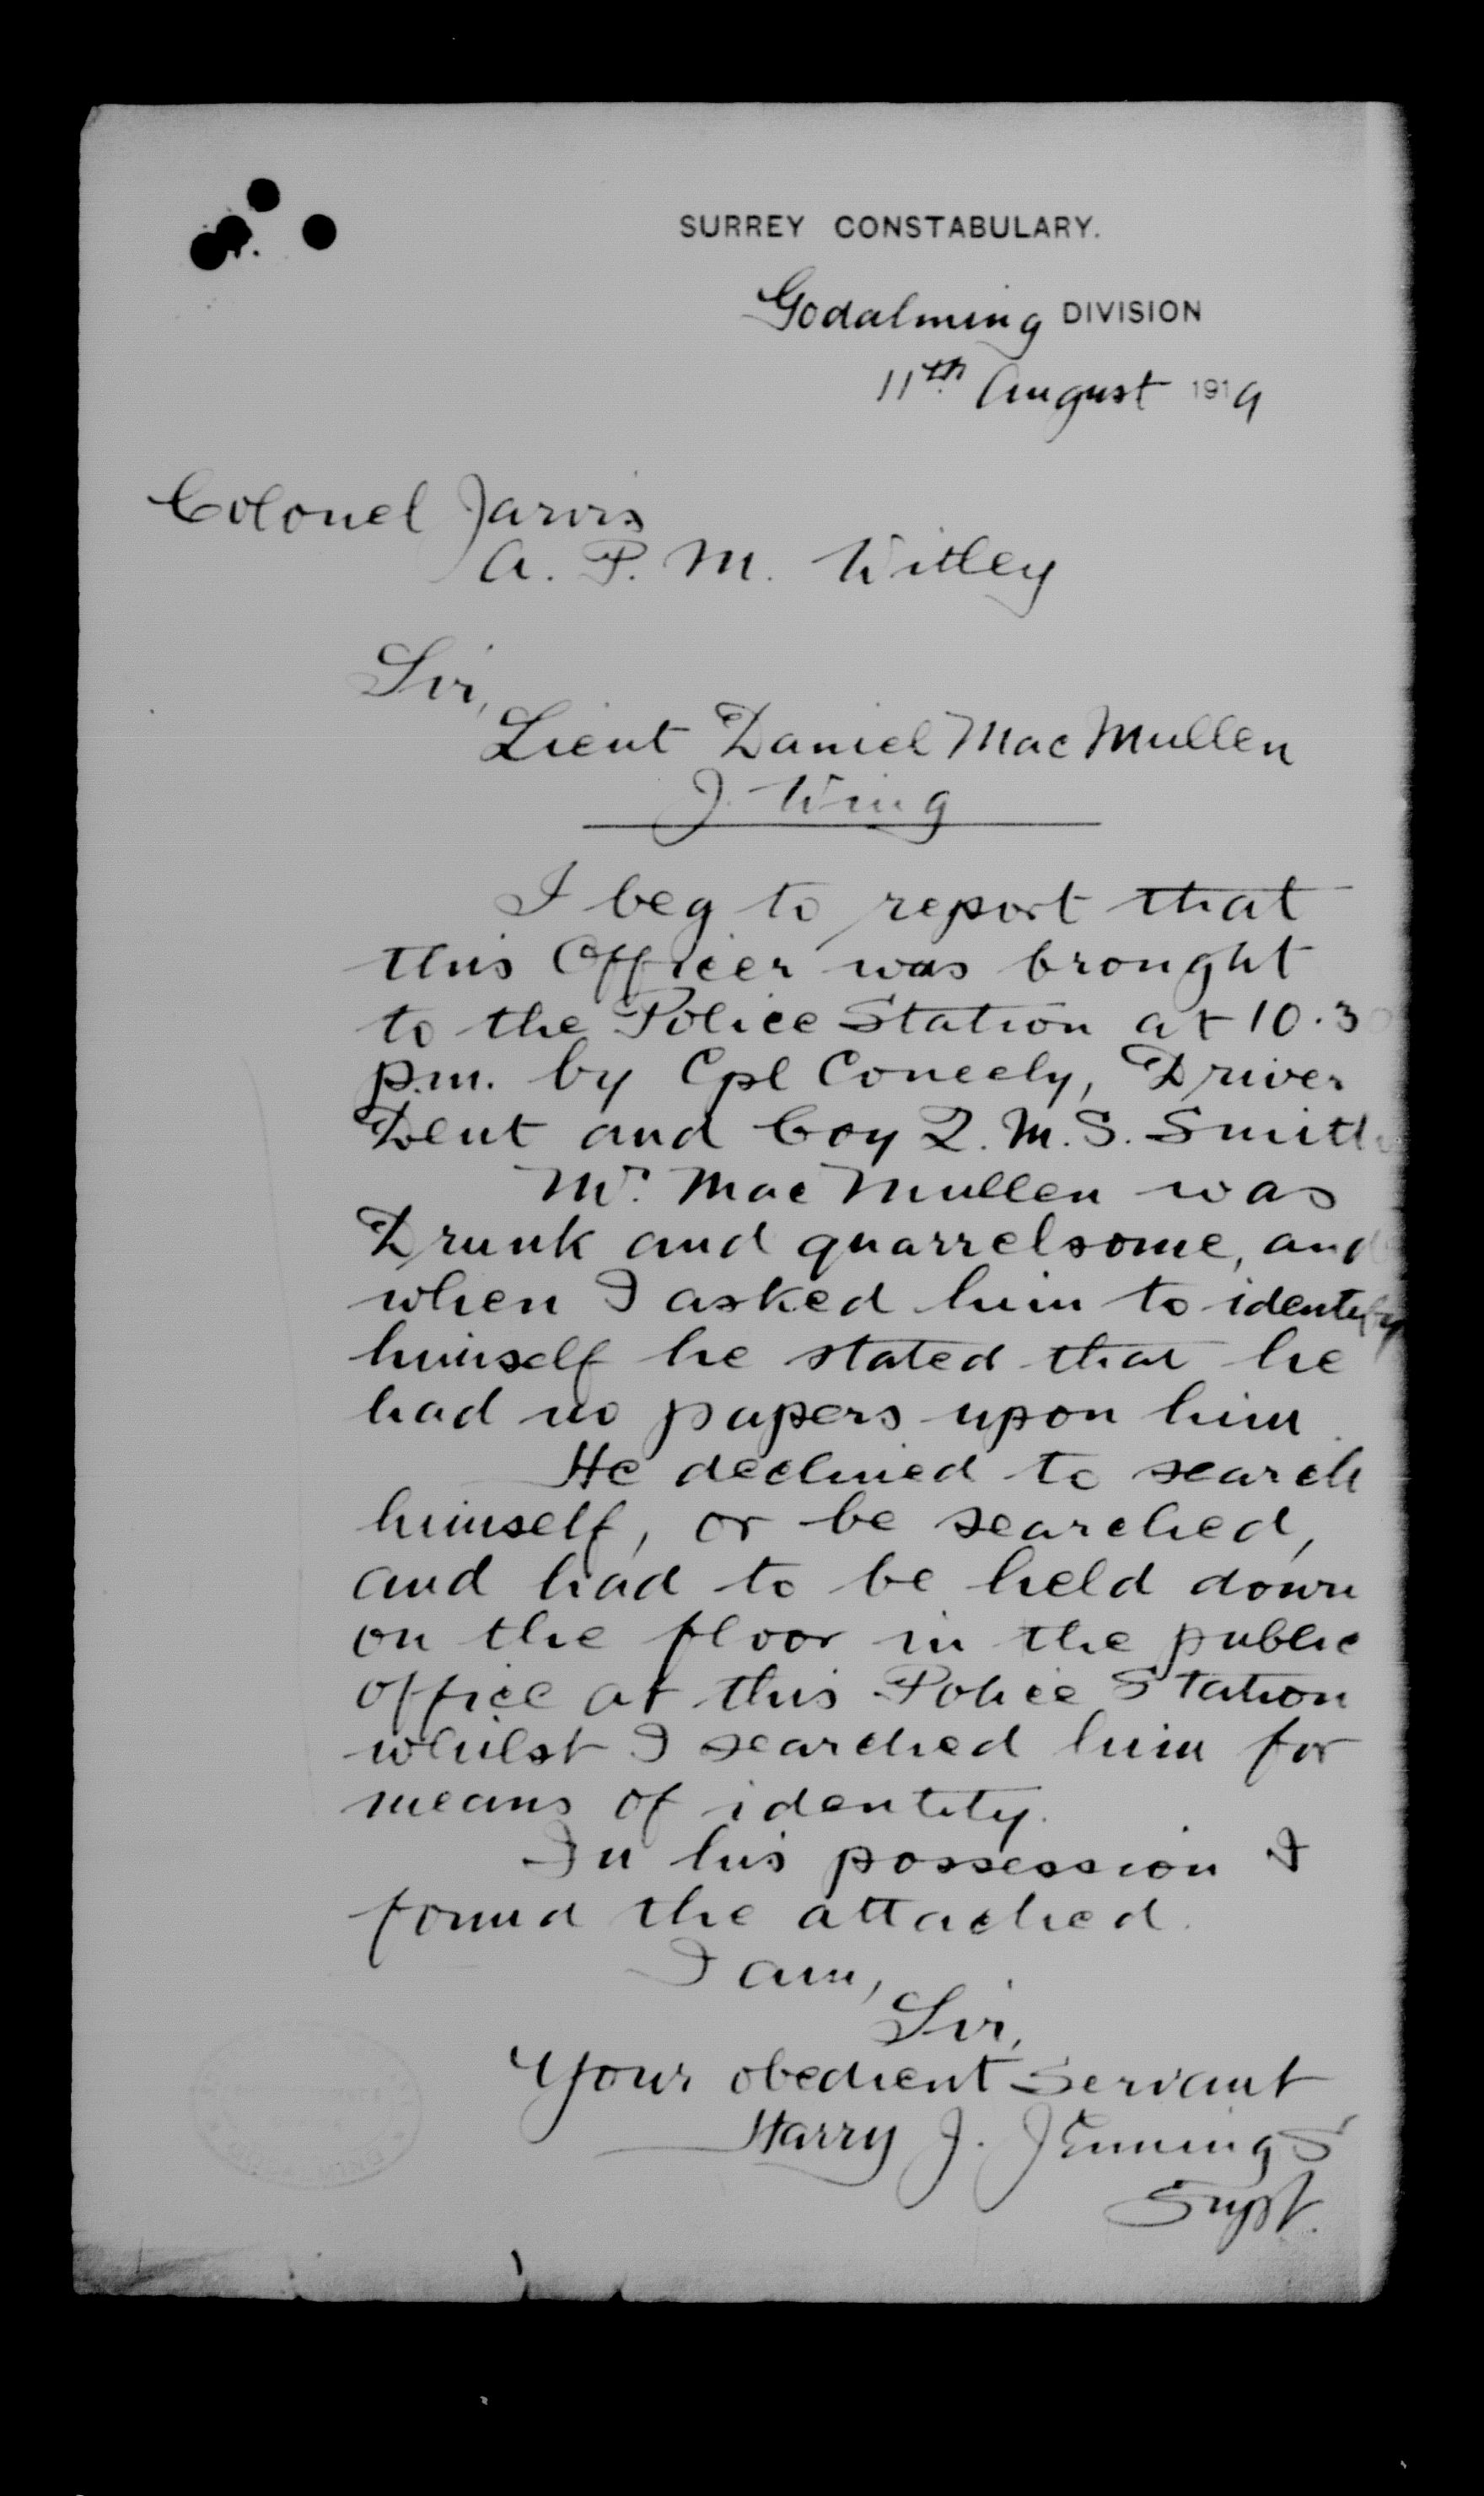 SURREY CONSTABULARY.
Godalming DIVISION
11th August 1919
Colonel Jarvis
A. P. M. Witley
Sir,
Lieut Daniel MacMullen
J. Wing
I beg to report that
this Officer was brought
to the Police Station at 10.30
p.m. by Cpl Coneely, Driver
Dent and Coy Q.M.S. Smith
Mr. MacMullen was
Drunk and quarrelsome, and
when I asked him to identify
himself he stated that he
had no papers upon him.
He declined to search
himself, or be searched,
and had to be held down
on the floor in the public
office at this Police Station
whilst I searched him for
means of identity.
In his possession I
found the attached.
I am,
Sir,
Your obedient Servant
Harry J. Jennings
Supt.